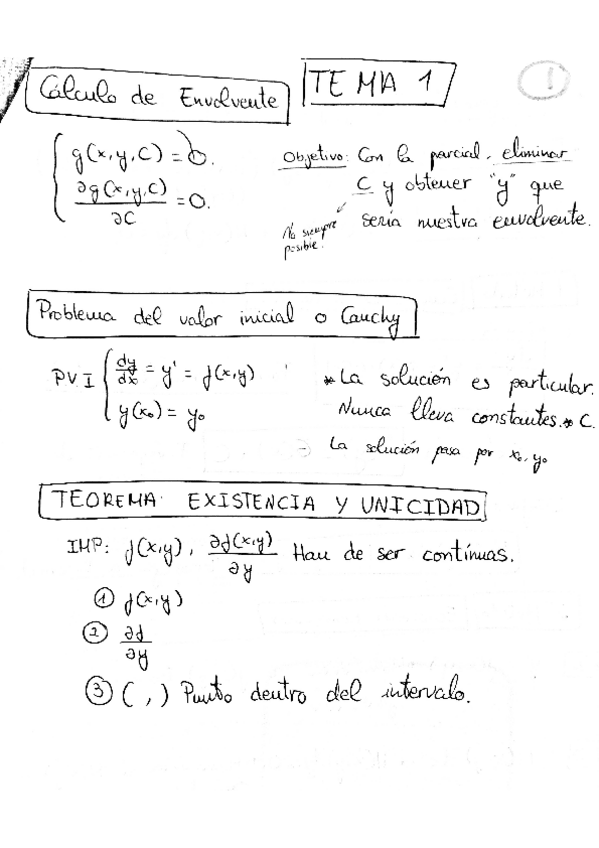 TEMA 1
1
Cálculo de Envolvente
g(x,y,C) = 0.
∂g(x,y,C)/∂C = 0.
Objetivo: Con la parcial, eliminar
C y obtener "y" que
sería nuestra envolvente.
No siempre
posible.
Problema del valor inicial o Cauchy
PVI { dy/dx = y' = f(x,y)
y(x₀) = y₀
* La solución es particular.
Nunca lleva constantes * C.
La solución pasa por x₀, y₀
TEOREMA EXISTENCIA Y UNICIDAD
IMP: f(x,y), ∂f(x,y)/∂y Han de ser contínuas.
① f(x,y)
② ∂f/∂y
③ ( , ) Punto dentro del intervalo.